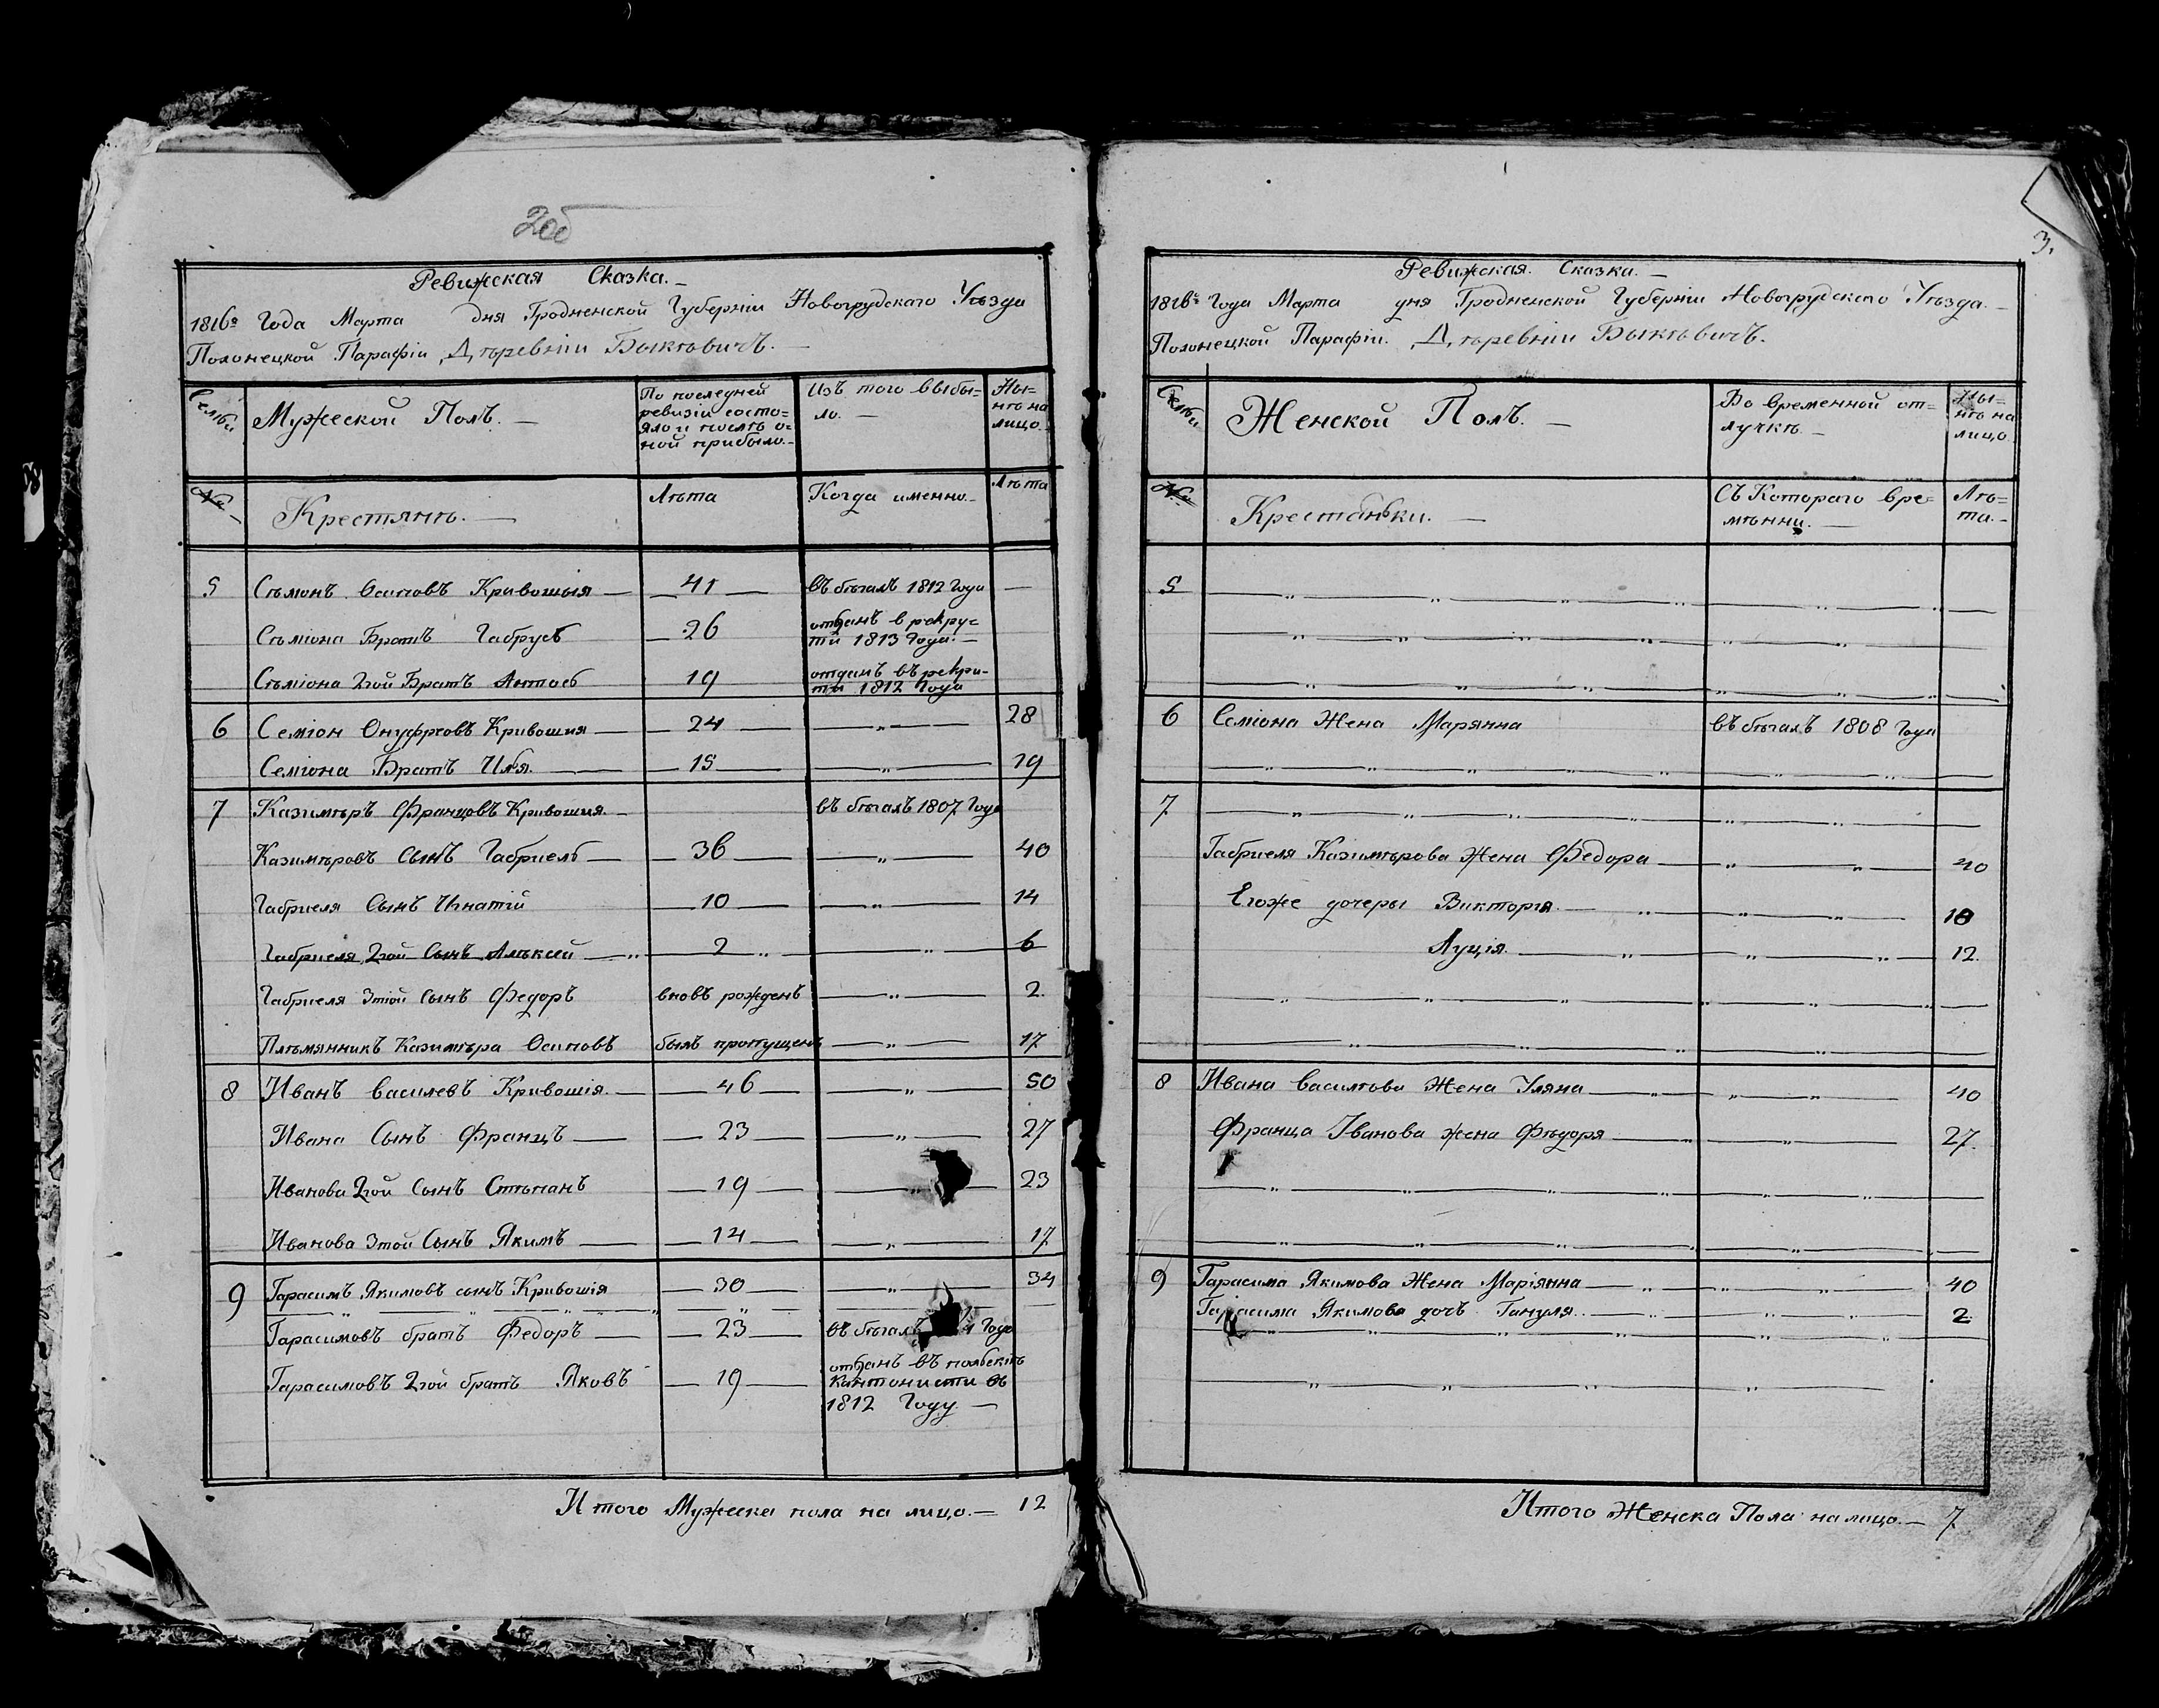 2об
Ревижская Сказка. —
1816го Года Марта дня Гродненской Губерніи Новогрудскаго Уѣзда
Полонецкой Парафіи, Дѣревніи Быкѣвичъ. —
Семьи
Мужеской Полъ. —
По последней
ревизіи состо=
яло и послѣ о=
ной прибыло. —
Изъ того выбы=
ло. —
Ны=
нѣ на
лицо.
№
Крестянѣ. —
Лѣта
Когда именно. —
Лѣта
5 Сѣмонъ Осиповъ Кривошыя — 41 — въ бѣгалъ 1812 Года —
Сѣміона Братъ Габрусь — 26 отданъ в рекру=
ти 1813 Года. —
Сѣміона 2гой Братъ Антось 19 отданъ въ рекри-
ти 1812 Года
6 Семіон Онуфрѣовъ Кривошия — 24 — „ — 28
Семіона Братъ Илья. — 15 — „ — 19
7 Казимѣръ Францовъ Кривошия. — въ бѣгалъ 1807 Года
Казимѣровъ Сынъ Габриель — 36 — „ — 40
Габриеля Сынъ Игнатій — 10 — „ — 14
Габриеля 2гой Сынъ Алѣксей — „ — 2 „ — „ — 6
Габриеля 3тій Сынъ Федоръ вновъ рожденъ — „ — 2.
Плѣмянникъ Казимѣра Осиповъ былъ пропущенъ — „ — 17
8 Иванъ Василевъ Кривошія. — 46 — „ — 50
Ивана Сынъ Францъ — 23 — „ — 27
Иванови 2гой Сынъ Стѣпанъ — 19 — „ — 23
Иванова 3той Сынъ Якимъ — 14 — „ — 17
9 Гарасимъ Якимовъ сынъ Кривошія — 30 — „ — 34
Гарасимовъ братъ Федоръ — 23 — въ бѣгалъ Году
Гарасимовъ 2гой братъ Яковъ — 19 — отданъ въ полскіѣ
кантонисти въ
1812 Году. —
Итого Мужеска пола на лицо. — 12
3.
Ревижская. Сказка. —
1816го Года Марта дня Гродненской Губерніи Новогрудскаго Уѣзда. —
Полонецкой Парафіи. Дѣревніи Быкѣвичъ.
Семьи
Женской Полъ. —
Во временной от=
лучкѣ. —
Ны=
нѣ на
лицо
№
Крестаньки. —
Съ Котораго вре=
мѣнни. —
Лѣ=
та. —
5
6 Семіона Жена Марянна въ бѣгалъ 1808 Года
7
Габриеля Казимѣрова Жена Федора — „ — „ — 40
Егоже дочеры Викторія. — „ — „ — „ — 18
Луція. — „ — „ — „ — 12
8 Ивана Василѣова Жена Уляна — „ — „ — „ — 40
Франца Іванова жена Фѣдоря — „ — „ — 27.
9 Гарасима Якимова Жена Маріянна — „ — „ — „ — 40
Гарасима Якимова дочъ Гануля. — „ — „ — „ — 2.
Итого Женска Пола на лицо. — 7